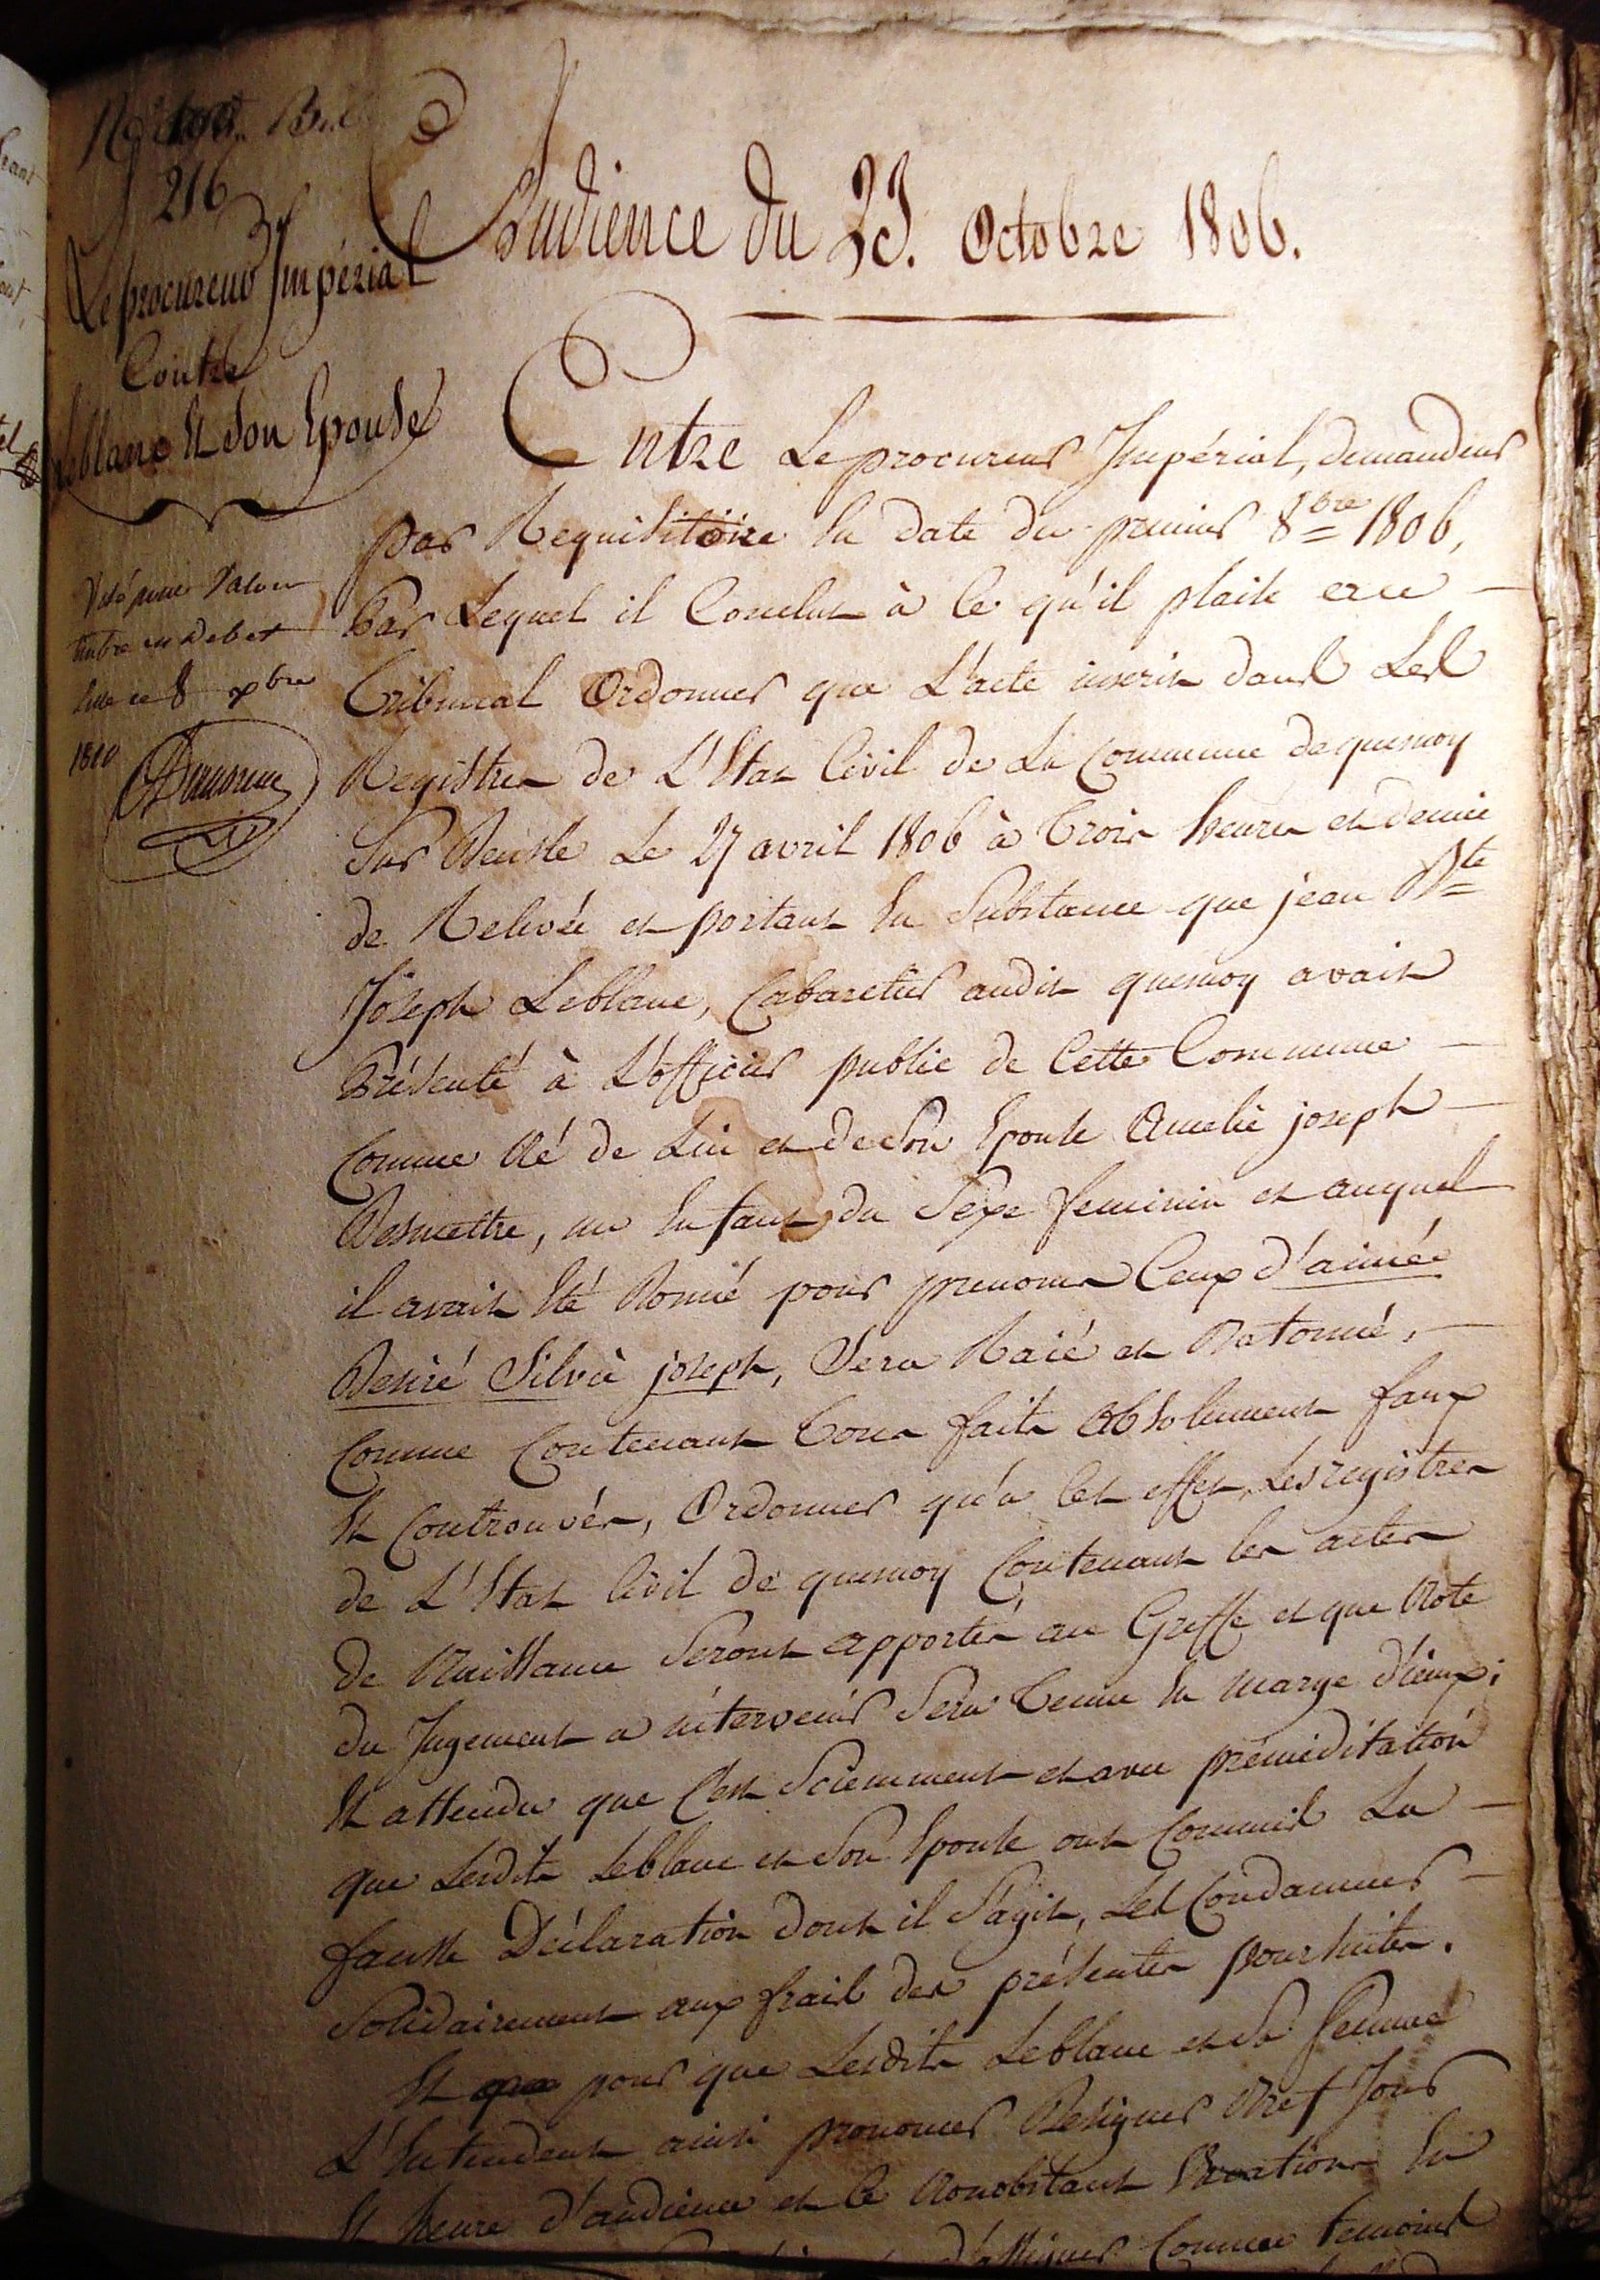 216
Le procureur Impérial
Contre
Leblanc Et Son Epouse
Visé pour valoir
timbre en debet
Lille ce 8 xbre
1810
Audience du 23. Octobre 1806.
Entre Le procureur Impérial, demandeur
par Requisitoire En date du premier 8bre 1806,
Par Lequel il Conclut à Ce qu'il plaise au
Tribunal Ordonner que L'acte inscrit dans Les
Registres de L'Etat Civil de La Commune de quesnoy
Sur Deusle Le 27 avril 1806 à Trois heures et demie
de Relevée et portant En Substance que jean Bte
Joseph Leblanc, Cabaretier audit quesnoy avait
Présenté à L'officier public de Cette Commune
Comme Né de Lui et de Son Epouse Amelie joseph
Desmettre, un Enfant du Sexe feminin et auquel
il avait Eté Donné pour prenoms Ceux d'aimée
Desiré Silvie joseph, Sera Raié et Batonné,
Comme Contenant Tous faits Absolument faux
Et Controuvés, Ordonner qu'à Cet effet, Les registres
de L'Etat Civil de quesnoy Contenant les actes
de Naissance Seront apportés au Greffe et que Note
du Jugement a intervenir Sera Tenue En marge d'iceux;
Et attendu que C'est Sciemment et avec préméditation
que Lesdits Leblanc et Son Epouse ont Commis La
fausse Déclaration dont il S'agit, Les Condamner
Solidairement aux frais des présentes poursuites.
Et pour que Lesdits Leblanc et Sa femme
L'Entendent ainsi prononcer Designer Bref Jour
Et heure d'audience et Ce Nonobstant Vacations En
d'assigner Comme temoins